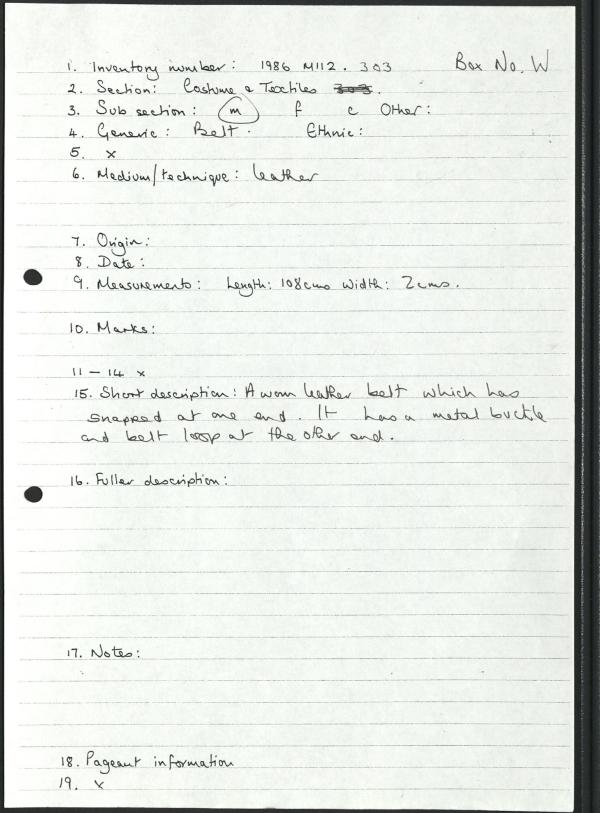 1. Inventory number: 1986 M112. 303 Box No. W
2. Section: Costume & Textiles 303.
3. Sub section: m f c Other:
4. Generic: Belt. Ethnic:
5. x
6. Medium/technique: leather
7. Origin:
8. Date:
9. Measurements: Length: 108cms Width: 2cms.
10. Marks:
11 - 14 x
15. Short description: A worn leather belt which has
snapped at one end. It has a metal buckle
and belt loop at the other end.
16. Fuller description:
17. Notes:
18. Pageant information
19. x